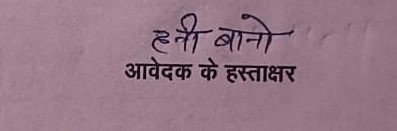 हनी बानो
आवेदक के हस्ताक्षर